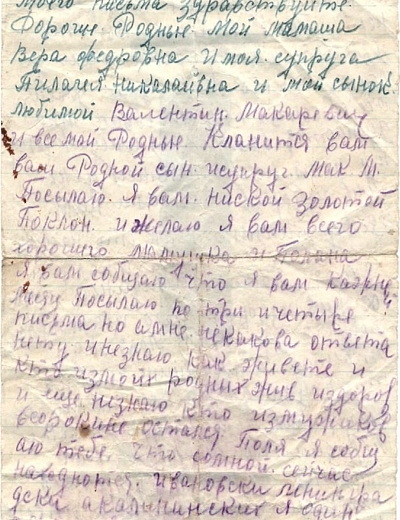 моего письма здравствуйте
Дорогие Родные Мой мамаша
Вера федровна И моя супруга
Пилагия никалаивна и мой сынок
любимой Валентин. Макаревич
и все мой Родные Кланится вам
вам Родной сын исупруг. Мак М.
Посылаю. Я вам. ниской Золотой
Поклон. и желаю я вам всего
хорошего мамушка и
Я вам собщаю что я вам кажну
Посылаю по три и четыре
письма но а мне некакова ответа
нету инезнаю как живете и
кто измоих родных жив издоров
и еще незнаю кто измужиков
остался Поля я собщ
аю тебе, что сомной сейчас
находютса. Ивановски ленингра
дски а калининских я один